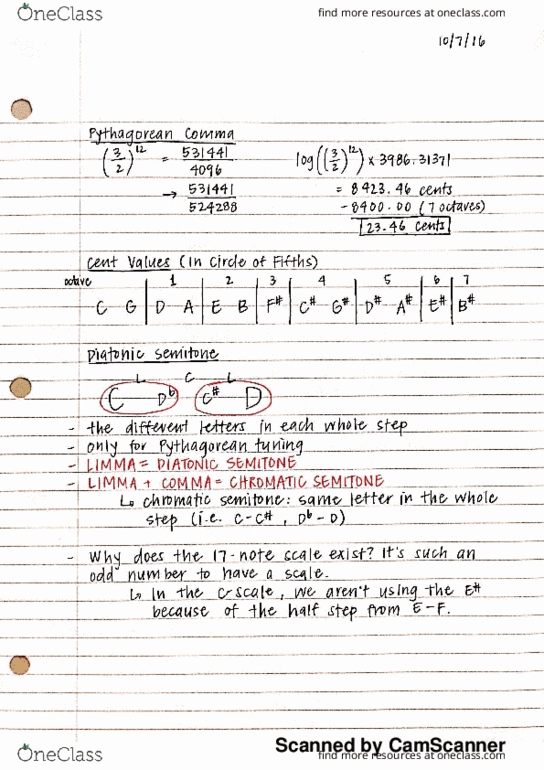 OneClass
find more resources at oneclass.com
10/7/16
Pythagorean Comma
(3/2)^12 = 531441/4096
→ 531441/524288
log((3/2)^12) x 3986.31371
= 8423.46 cents
- 8400.00 (7 octaves)
23.46 cents
Cent Values (in Circle of Fifths)
octave 1 2 3 4 5 6 7
C G | D A | E B | F# | C# G# | D# A# | E# | B#
Diatonic Semitone
L C L
C Db C# D
- the different letters in each whole step
- only for Pythagorean tuning
- LIMMA = DIATONIC SEMITONE
- LIMMA + COMMA = CHROMATIC SEMITONE
↳ chromatic semitone: same letter in the whole
step (i.e. C-C#, Db-D)
- Why does the 17-note scale exist? It's such an
odd number to have a scale.
↳ in the C-scale, we aren't using the E#
because of the half step from E-F.
Scanned by CamScanner
OneClass
find more resources at oneclass.com